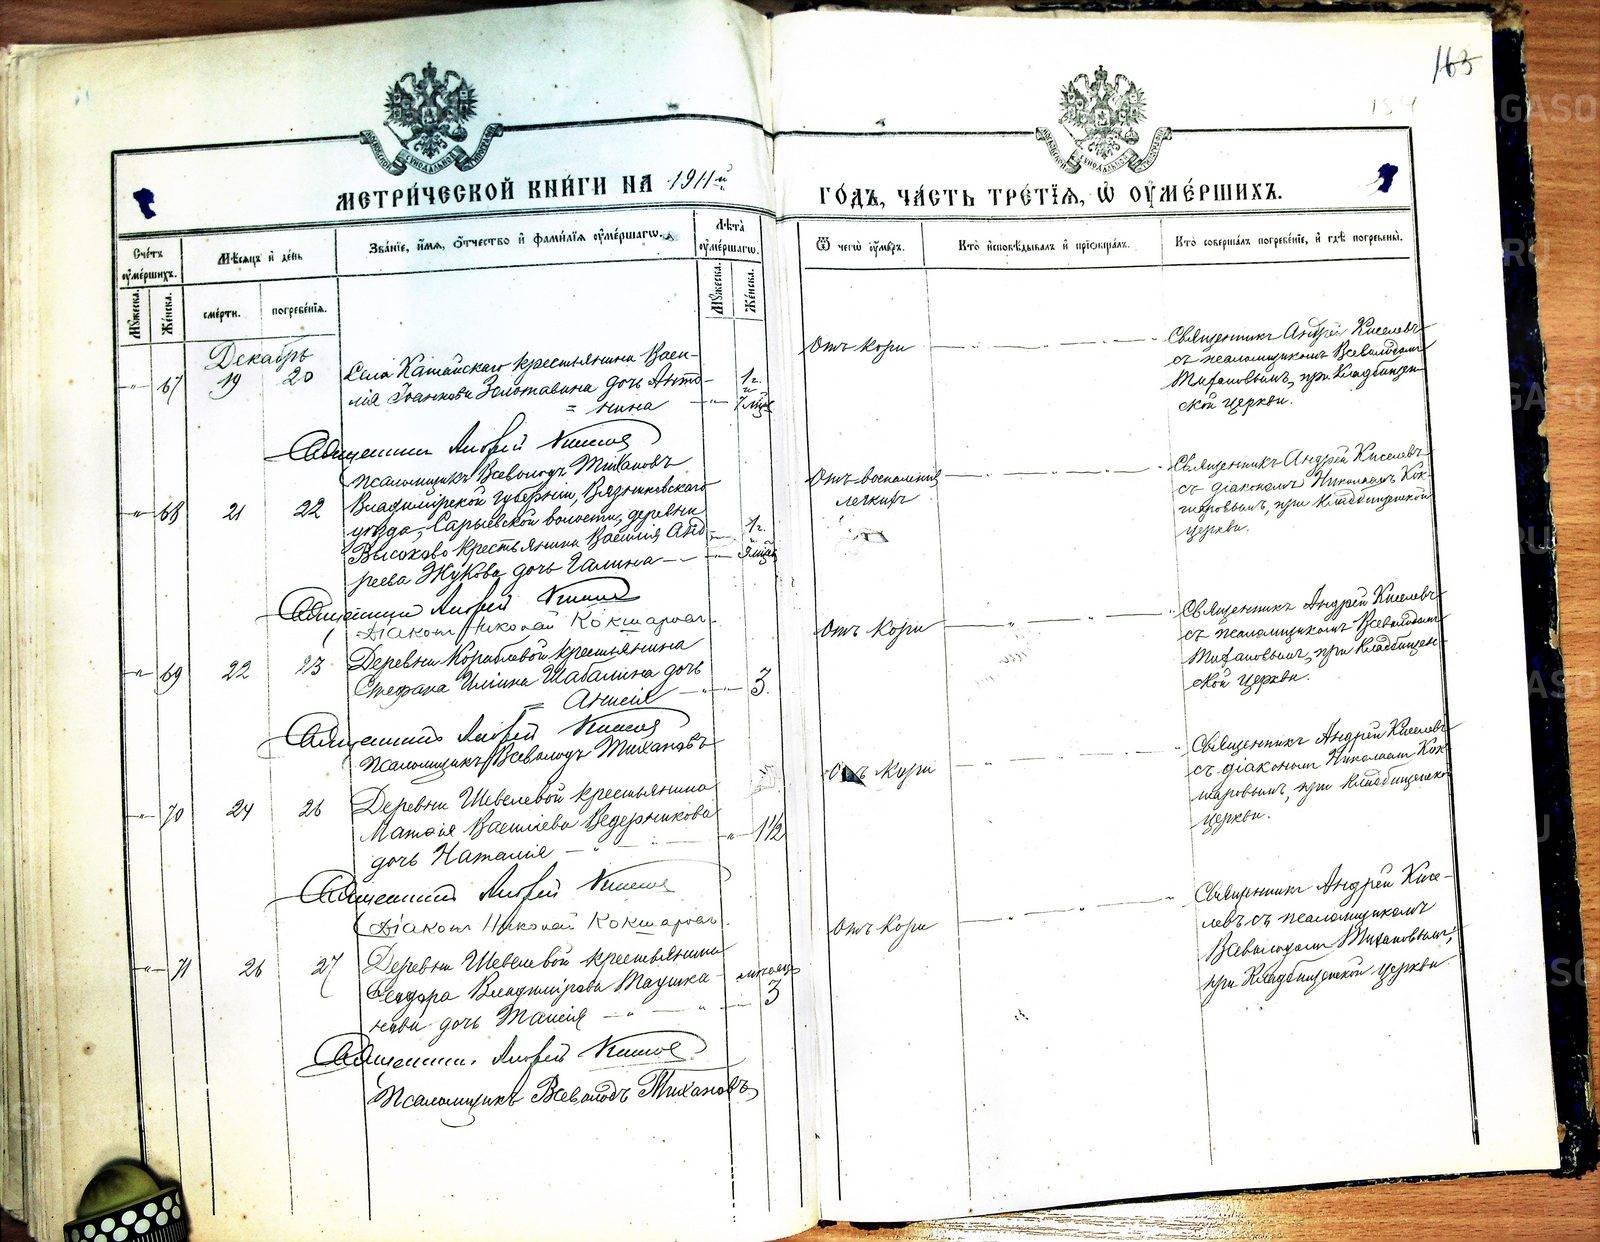 165
МЕТРИ́ЧЕСКОЙ КНИ́ГИ НА 1911й
ГОДЪ, ЧА́СТЬ ТРЕ́ТІѦ, Ѡ ОУМЕ́РШИХЪ.
Сче́тъ оуме́ршихъ.
Мꙋ́жеска.
Же́нска.
Мѣ́сяцъ и҆ де́нь
сме́рти.
погребе́нїѧ.
Зва́нїе, и҆́мѧ, ѻ҆́тчество и҆ фами́лїѧ оуме́ршагѡ.
Лѣ́та оуме́ршагѡ.
Мꙋ́жеска.
Же́нска.
Ѿ чегѡ̀ оу́меръ.
Кто̀ и҆сповѣ́дывалъ и҆ прїѡбща́лъ.
Кто̀ соверша́лъ погребе́нїе, и҆ гдѣ̀ погребены̀.
Декабрь
67 19 20
Села Катайскаго крестьянина Васи-
лія Іоаннова Золотавина дочь Анто-
= нина
1 г. и 7 мцев
Отъ кори
Священникъ Андрей Киселевъ
съ псаломщикомъ Всеволодомъ
Тихановымъ, при Кладбищен-
ской церкви.
Священникъ Андрей Киселев
Псаломщикъ Всеволодъ Тихановъ
68 21 22
Владимірской губерніи, Вязниковскаго
уѣзда, Сарыевской волости, деревни
Высоково крестьянина Василія Анд-
реева Жукова дочь Галина
1 г. и мцев
Отъ воспаленія
легкихъ
Священникъ Андрей Киселевъ
съ діакономъ Николаемъ Кок-
шаровымъ, при Кладбищенской
церкви.
Священникъ Андрей Киселев
Діаконъ Николай Кокшаровъ
69 22 23
Деревни Кораблевой крестьянина
Стефана Иліина Шабалина дочь
= Анисія
3.
Отъ кори
Священникъ Андрей Киселевъ
съ псаломщикомъ Всеволодомъ
Тихановымъ, при Кладбищен-
ской церкви.
Священникъ Андрей Киселев
Псаломщикъ Всеволодъ Тихановъ
70 24 26
Деревни Шевелевой крестьянина
Матѳія Василіева Ведерникова
дочь Наталія
1½
Отъ кори
Священникъ Андрей Киселевъ
съ діакономъ Николаемъ Кок-
шаровымъ, при Кладбищенской
церкви.
Священникъ Андрей Киселев
Діаконъ Николай Кокшаровъ
71 26 27
Деревни Шевелевой крестьянина
Ѳеодора Владимірова Таушка-
нова дочь Таисія
мѣсяц. 3
Отъ кори
Священникъ Андрей Кисе-
левъ съ псаломщикомъ
Всеволодомъ Тихановымъ,
при Кладбищенской церкви
Священникъ Андрей Киселев
Псаломщикъ Всеволодъ Тихановъ